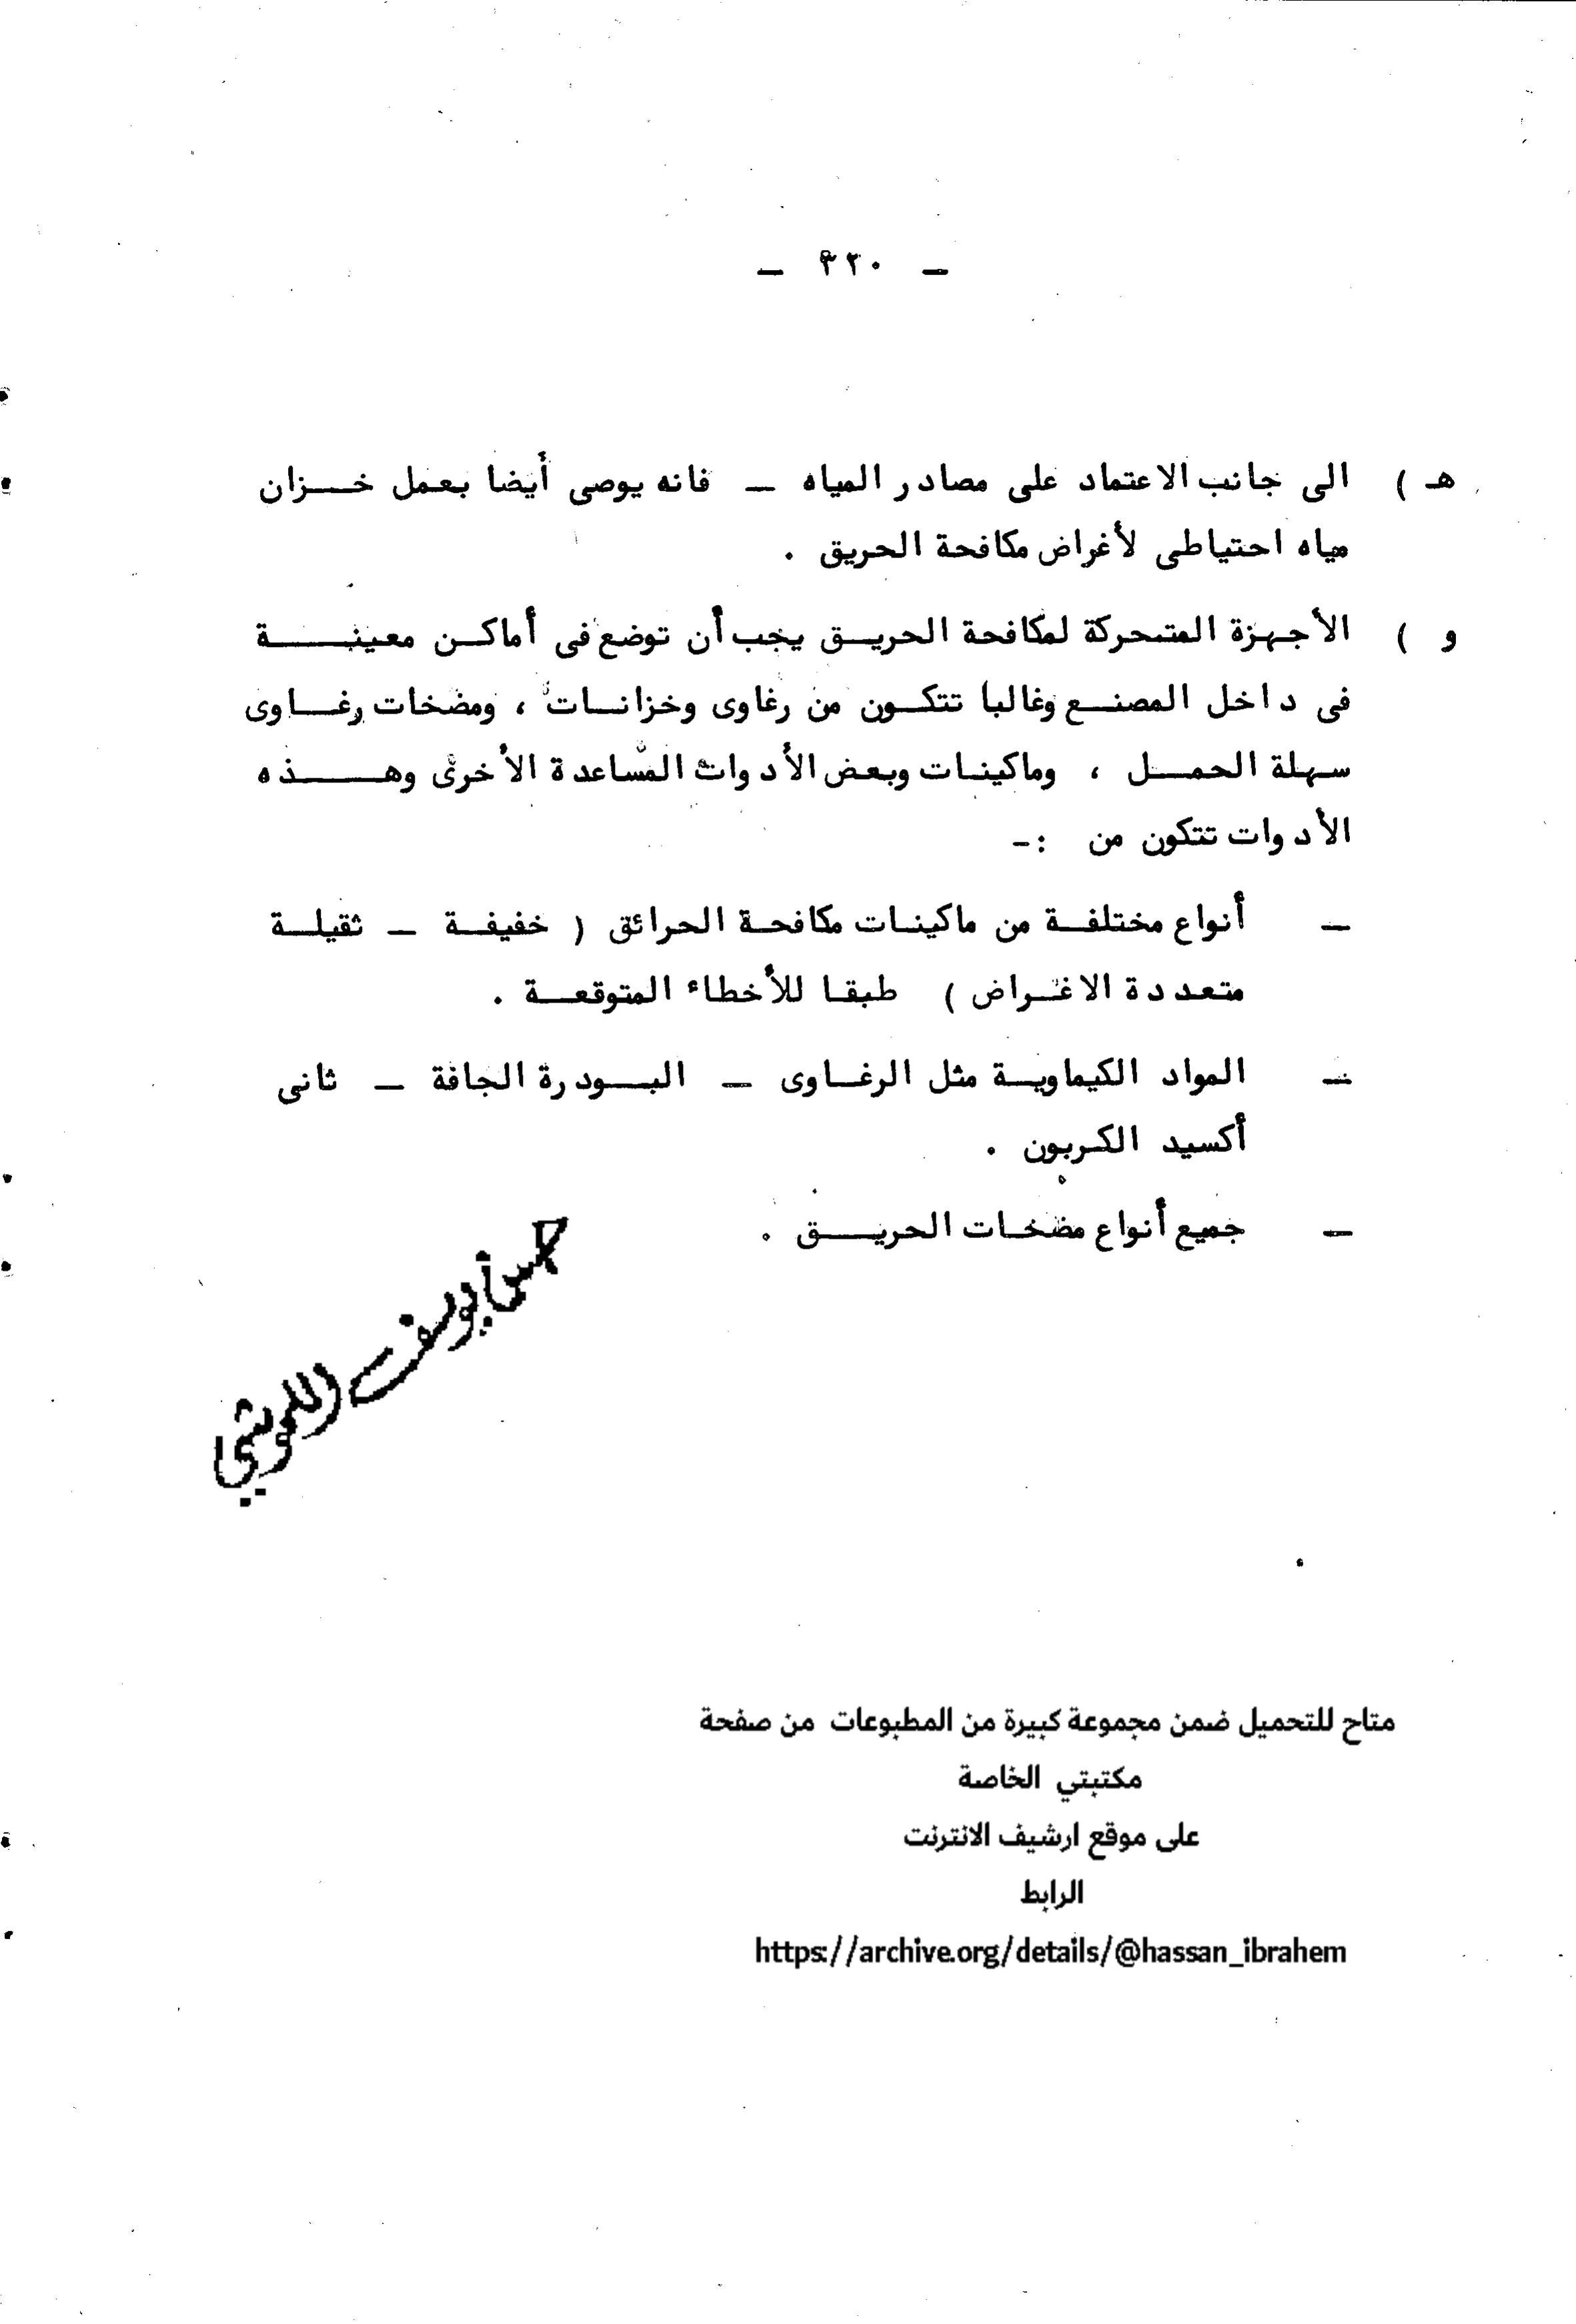 – ٣٢٠ –
هـ ) الى جانب الاعتماد على مصادر المياه – فانه يوصى أيضا بعمل خزان
مياه احتياطى لأغراض مكافحة الحريق .
و ) الأجهزة المتحركة لمكافحة الحريق يجب أن توضع فى أماكن معينة
فى داخل المصنع وغالبا تتكون من رغاوى وخزانات ، ومضخات رغاوى
سهلة الحمل ، وماكينات وبعض الأدوات المساعدة الأخرى وهذه
الأدوات تتكون من :-
– أنواع مختلفة من ماكينات مكافحة الحرائق ( خفيفة – ثقيلة
متعددة الاغراض ) طبقا للأخطاء المتوقعة .
– المواد الكيماوية مثل الرغاوى – البودرة الجافة – ثانى
أكسيد الكربون .
– جميع أنواع مضخات الحريق .
متاح للتحميل ضمن مجموعة كبيرة من المطبوعات من صفحة
مكتبتي الخاصة
على موقع ارشيف الانترنت
الرابط
https://archive.org/details/@hassan_ibrahem